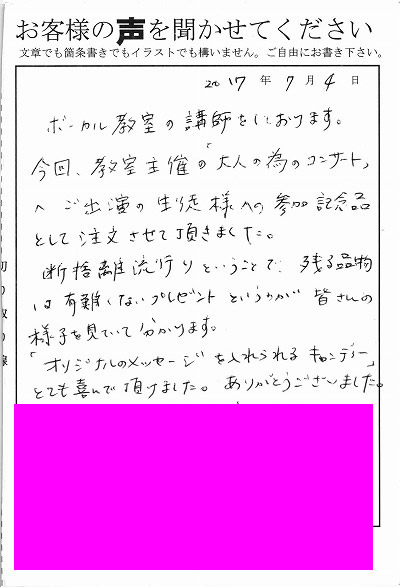 お客様の声を聞かせてください
文章でも箇条書きでもイラストでも構いません。ご自由にお書き下さい。
2017年 7月 4日
ボーカル教室の講師をしております。
今回、教室主催の「大人の為のコンサート」
へご出演の生徒様への参加記念品
として注文させて頂きました。
断捨離流行りということで、残る品物
は有難くないプレゼントというのが皆さんの
様子を見ていて分かります。
「オリジナルのメッセージを入れられるキャンディー」
とても喜んで頂けました。ありがとうございました。
切り取り線